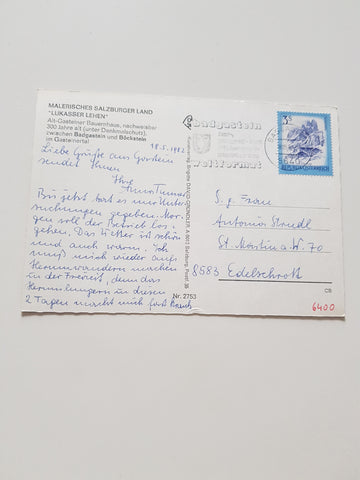 MALERISCHES SALZBURGER LAND
"LUKASSER LEHEN"
Alt-Gasteiner Bauernhaus, nachweisbar
300 Jahre alt (unter Denkmalschutz),
zwischen Badgastein und Böckstein
im Gasteinertal
18.5.1982
Liebe Grüße aus Gastein
sendet Ihnen
Ihre
Bis jetzt hat es Unter-
suchungen gegeben. Mor-
gen soll der Betrieb los-
gehen. Das Wetter ist schön
und auch warm. Ich
muß mich wieder aufs
Herumwandern machen
in der Freizeit, denn das
Herumlungern in diesen
2 Tagen macht mich fast krank
Nr. 2753
badgastein
weltformat
3 S
REPUBLIK ÖSTERREICH
S. g. Frau
Antonia Strudl
St. Martin a. W. 70
8583 Edelschrott
CB
6400